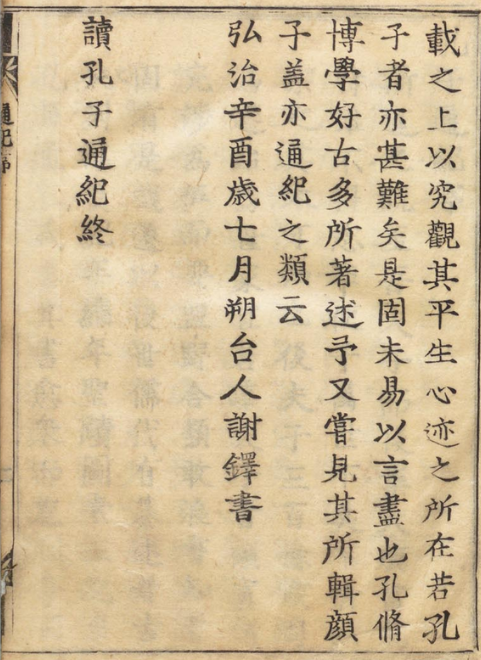 載之上以究觀其平生心迹之所在若孔
子者亦甚難矣是固未易以言盡也孔脩
博學好古多所著述予又嘗見其所輯顔
子盖亦通紀之類云
弘治辛酉歲七月朔台人謝鐸書
讀孔子通紀終
通紀